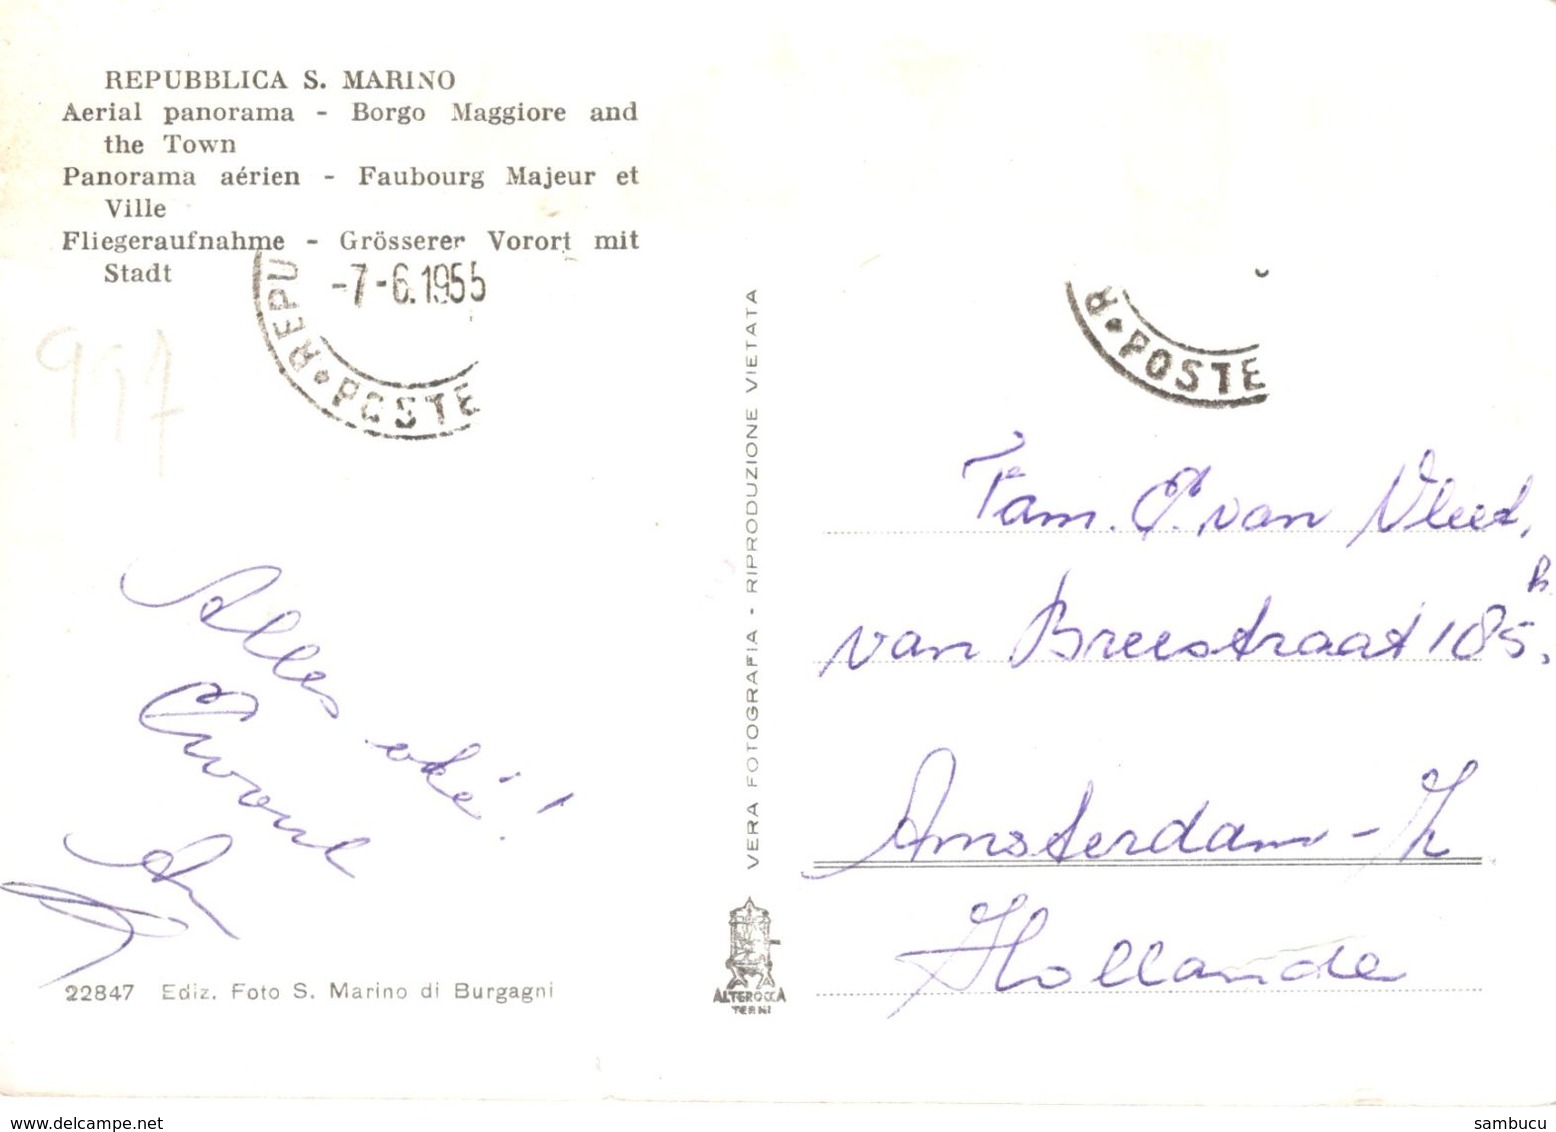 REPUBBLICA S. MARINO
Aerial panorama - Borgo Maggiore and
the Town
Panorama aérien - Faubourg Majeur et
Ville
Fliegeraufnahme - Grösserer Vorort mit
Stadt
R. REPU
-7-6.1955
POSTE
997
Alles
oké!
22847 Ediz. Foto S. Marino di Burgagni
VERA FOTOGRAFIA - RIPRODUZIONE VIETATA
ALTEROCCA
TERNI
R • POSTE
Fam. P. van Vleet,
van Breestraat 185 B.
Amsterdam-Z
Hollande
www.delcampe.net
sambucu